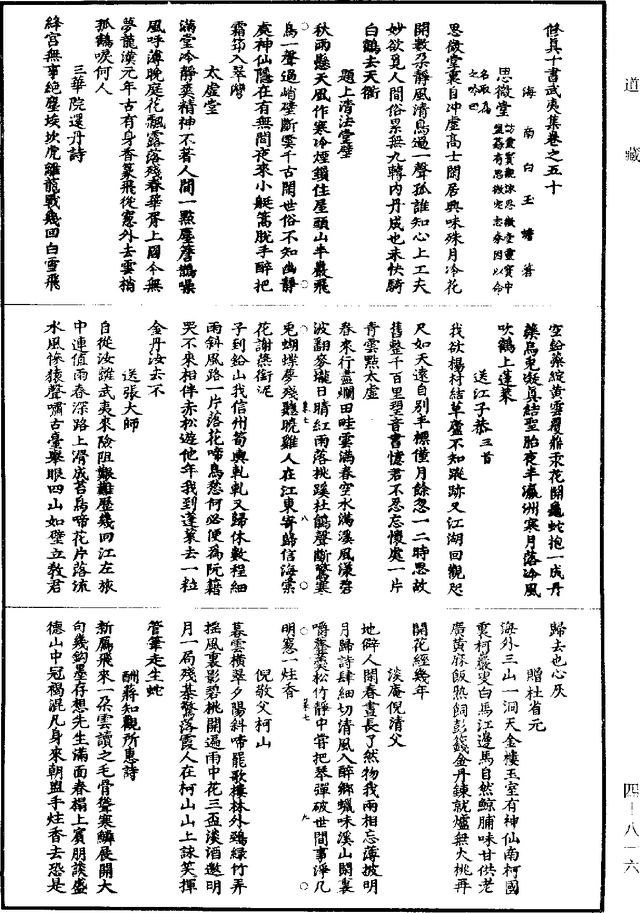 道藏
四-八一六
修真十書武夷集卷之五十
海南白玉蟾著
思微堂
思微堂裏自冲虛高士閑居興味殊月冷花
開數朵靜風清鳥過一聲孤誰知心上工夫
妙欲覓人間俗累無九轉內丹成也未快騎
白鶴去天衢
題上清法堂壁
秋雨懸天風作寒冷煙鎖住屋頭山半巖飛
鳥一聲過峭壁斷雲千古閑世俗不知幽靜
處神仙隱在有無間夜來小艇篙脫手醉把
霜筇入翠灣
太虛堂
滿堂冷靜爽精神不著人間一點塵簷鵲噪
風呼薄晚庭花飄露落殘春華胥上國今無
夢龍漢元年古有身香篆飛從窻外去雲梢
孤鶴唳何人
三華院還丹詩
絳宮無事絕塵埃坎虎離龍戰幾回白雪飛
空紛蘂綻黃雲覆鼎汞花開龜蛇抱一成丹
藥烏兔凝真結聖胎夜半瀛洲寒月落冷風
吹鶴上蓬萊
送江子恭三首
我欲楊村結草廬不知蹤跡又江湖回觀咫
尺如天遠自別丰標僅月餘忽一二時思故
舊整千百里望音書憶君不忍忘懷處一片
青雲點太虛
春來行盡爛田畦雲滿春空水滿溪風漾碧
波翻麥壠日晴紅雨落桃蹊杜鵑聲斷驚寒
兔蝴蝶夢殘聽曉雞人在江東寄歸信海棠
花謝燕銜泥
子到鉛山我信州筍輿軋軋又歸休數程細
雨斜風路一片落花啼鳥愁何必便為阮籍
哭不來相伴赤松遊他年我到蓬萊去一粒
金丹汝去不
送張大師
自從汝離武夷來險阻艱難歷幾回江左旅
中連值雨春深路上滑成苔鳥啼花片落流
水風慘猿聲嘯古臺舉眼四山如壁立教君
歸去也心灰
贈杜省元
海外三山一洞天金樓玉室有神仙南柯國
裏柯巖叟白馬江邊馬自然鯨脯味甘供老
廣黃麻飯熟飼彭籛金丹鍊就爐無火桃再
開花經幾年
淡庵倪清父
地僻人閑春晝長了然物我兩相忘薄披明
月歸詩肆細切清風入醉鄉蠟味溪山閑裏
嚼虀羹松竹靜中嘗把琴彈破世間事淨几
明窻一炷香
倪敬父柯山
暮雲橫翠夕陽斜啼罷歌樓林外鴉綠竹弄
搖風裏影碧桃開遍雨中花三盃淡酒邀明
月一局殘碁驚落霞人在柯山山上詠笑揮
管筆走生蛇
酬蔣知觀所惠詩
新鴈飛來一朵雲讀之毛骨聳寒鱗展開大
句幾鉤墨存想先生滿面春榻上賓朋談盛
德山中冠褐混凡身來朝盥手炷香去恐是